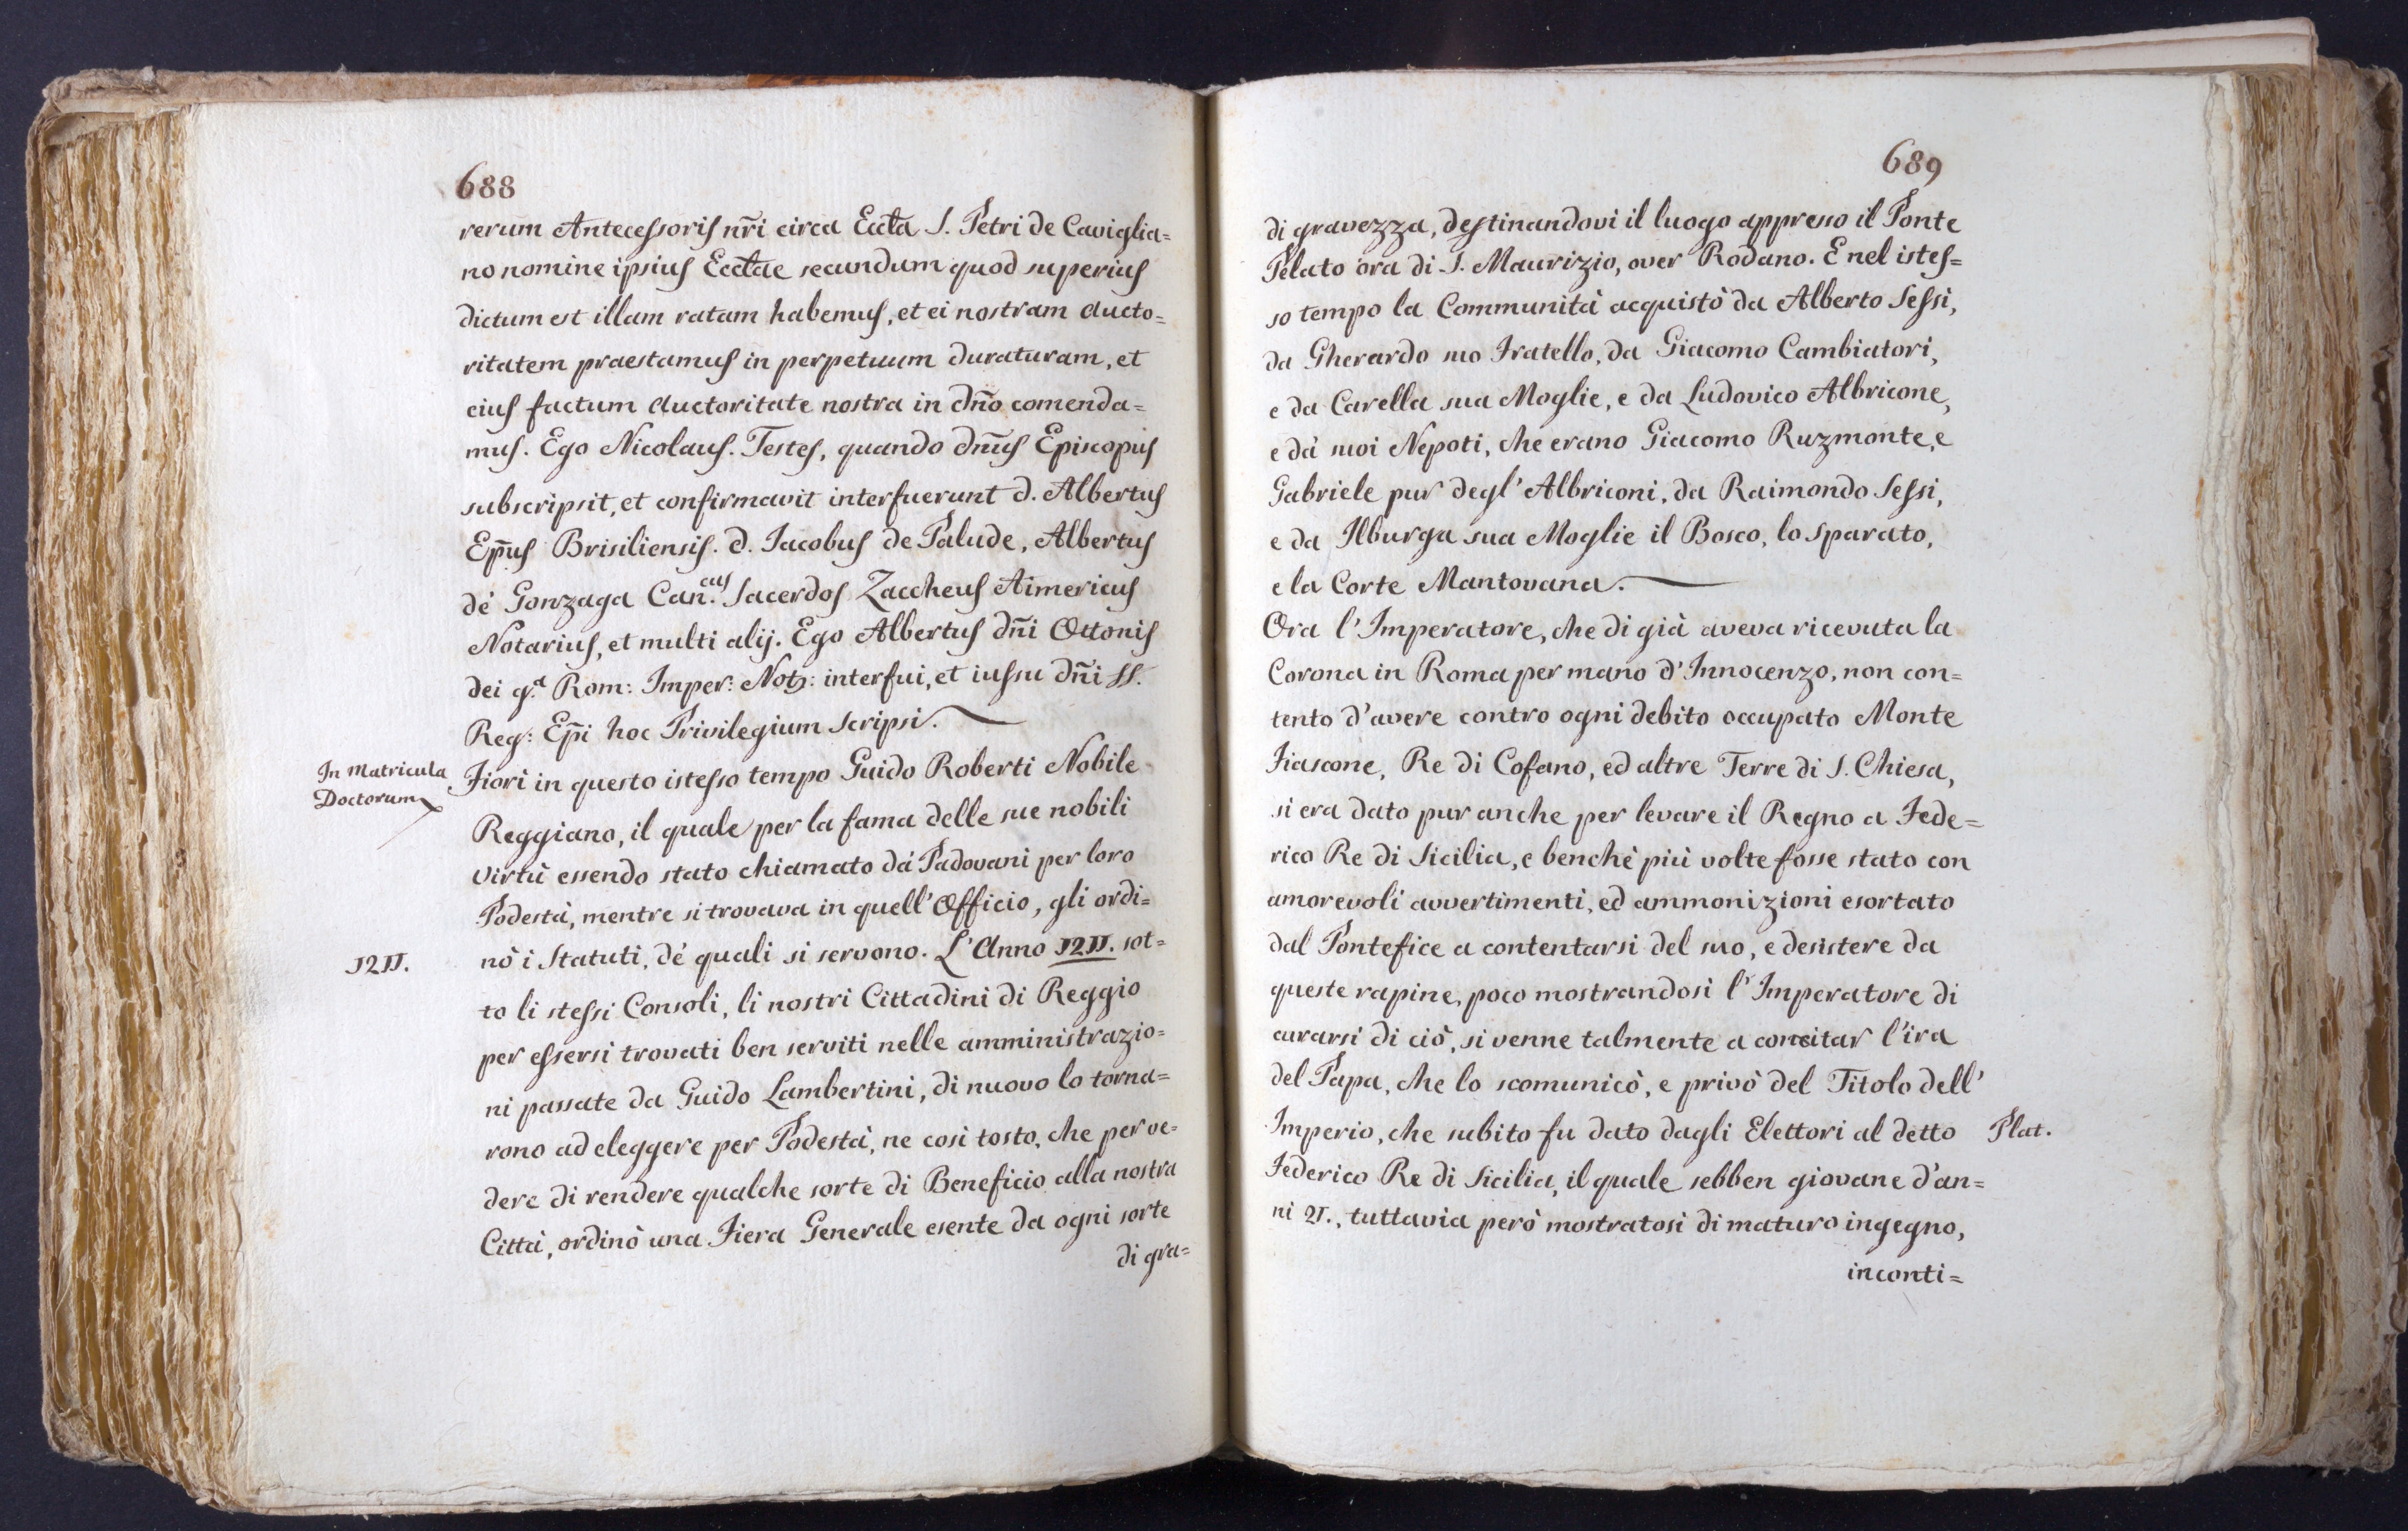 688
rerum Antecessoris nr̃i circa Eccta S. Petri de Caviglia=
no nomine ipsius Ecctae secundum quod superius
dictum est illam ratam habemus, et ei nostram aucto=
ritatem praestamus in perpetuum duraturam, et
eius factum auctoritate nostra in dño comenda=
mus. Ego Nicolaus. Testes, quando dñus Episcopus
subscripsit, et confirmavit interfuerunt d. Albertus
Ep̃us Brisiliensis. d. Iacobus de Palude, Albertus
dé Gonzaga Can.cus Sacerdos Zaccheus Aimericus
Notarius, et multi alij. Ego Albertus dñi Ottonis
dei g.a Rom: Imper: Not: interfui, et iussu dñi SS.
Reg: Ep̃i hoc Privilegium scripsi.
In Matricula
Doctorum
Fiorì in questo istesso tempo Guido Roberti Nobile
Reggiano, il quale per la fama delle sue nobili
virtù essendo stato chiamato dá Padovani per loro
Podestà, mentre si trovava in quell' Officio, gli ordi=
1211.
nò i Statuti, dé quali si servono. L'Anno 1211. sot=
to li stessi Consoli, li nostri Cittadini di Reggio
per essersi trovati ben serviti nelle amministrazio=
ni passate da Guido Lambertini, di nuovo lo torna=
rono ad eleggere per Podestà, ne così tosto, che per ve=
dere di rendere qualche sorte di Beneficio alla nostra
Città, ordinò una Fiera Generale esente da ogni sorte
di gra=
689
di gravezza, destinandovi il luogo appresso il Ponte
Pelato ora di S. Maurizio, over Rodano. E nel istes=
so tempo la Communità acquistò da Alberto Sessi,
da Gherardo suo Fratello, da Giacomo Cambiatori,
e da Carella sua Moglie, e da Ludovico Albricone,
e dà suoi Nepoti, che erano Giacomo Ruzmonte, e
Gabriele pur degl' Albriconi, da Raimondo Sessi,
e da Ilburga sua Moglie il Bosco, lo Sparato,
e la Corte Mantovana.
Ora l'Imperatore, che di già aveva ricevuta la
Corona in Roma per mano d'Innocenzo, non con=
tento d'avere contro ogni debito occupato Monte
Fiascone, Re di Cofano, ed altre Terre di S. Chiesa,
si era dato pur anche per levare il Regno a Fede=
rico Re di Sicilia, e benchè più volte fosse stato con
amorevoli avvertimenti, ed ammonizioni esortato
dal Pontefice a contentarsi del suo, e desistere da
queste rapine, poco mostrandosi l'Imperatore di
curarsi di ciò, si venne talmente a concitar l'ira
del Papa, che lo scomunicò, e privò del Titolo dell'
Imperio, che subito fu dato dagli Elettori al detto
Plat.
Federico Re di Sicilia, il quale sebben giovane d'an=
ni 21., tuttavia però mostratosi di maturo ingegno,
inconti=